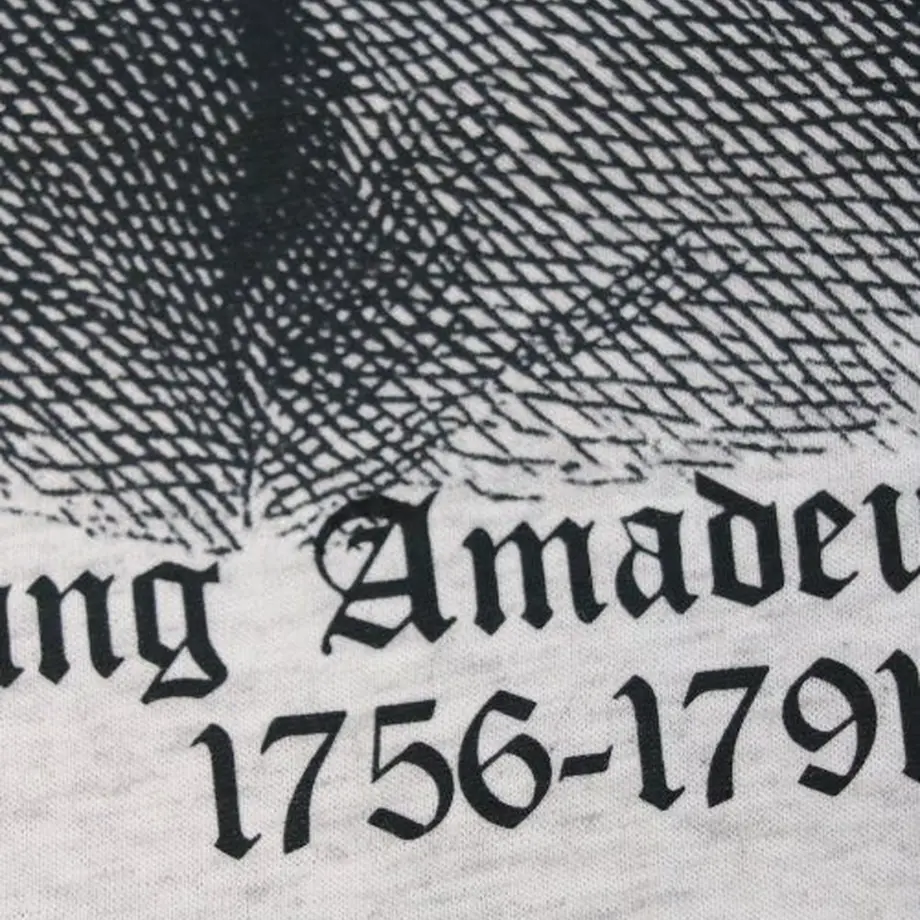 ang Amadeu
1756-1791